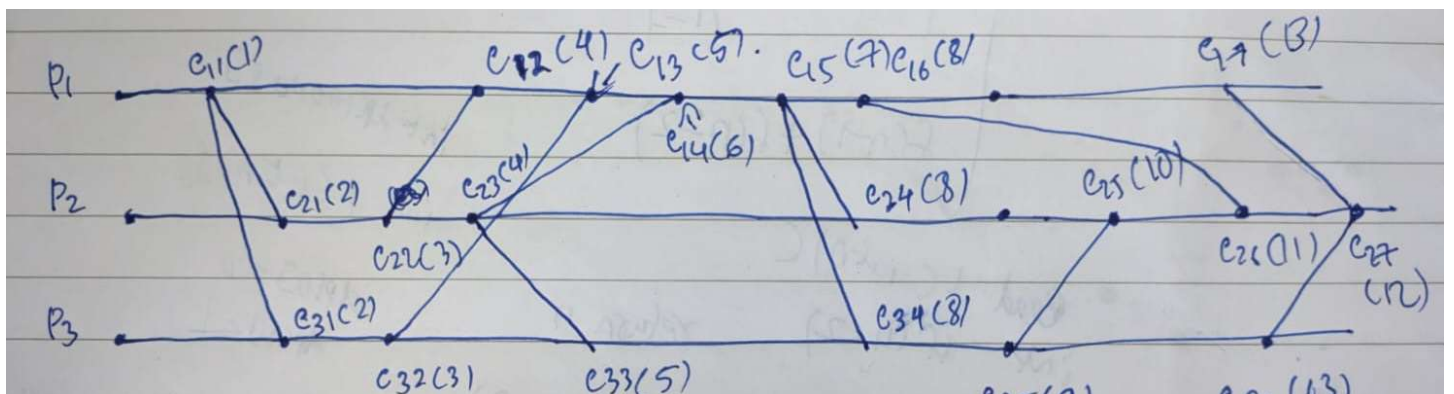 e11(1) e12(4) e13(5). e15(7) e16(8) e17(13)
P1
e14(6)
P2 e21(2) e23(4) e24(8) e25(10)
e22(3) e26(11) e27
(12)
P3 e31(2) e34(8)
e32(3) e33(5) (13)